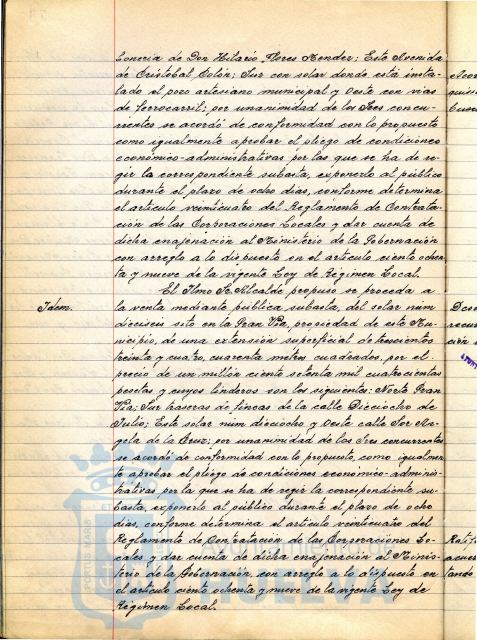 boneria de Don Hilario Flores Mender; Este Avenida
de Cristóbal Colón; Sur con solar donde está insta-
lado el pozo artesiano municipal y Oeste con vías
de ferrocarril; por unanimidad de los Sres concu-
rrentes se acordó de conformidad con lo propuesto
como igualmente aprobar el pliego de condiciones
económico-administrativas por las que se ha de re-
gir la correspondiente subasta, exponerlo al público
durante el plazo de ocho días, conforme determina
el artículo veinticuatro del Reglamento de Contrata-
ción de las Corporaciones Locales y dar cuenta de
dicha enajenación al Ministerio de la Gobernación
con arreglo a lo dispuesto en el artículo ciento ochen-
ta y nueve de la vigente Ley de Régimen Local.
El Ilmo Sr. Alcalde propuso se proceda a
Idem.
la venta mediante pública subasta, del solar núm
dieciseis sito en la Gran Vía, propiedad de este Mu-
nicipio, de una extensión superficial de trescientos
treinta y cuatro, cuarenta metros cuadrados, por el
precio de un millón ciento setenta mil cuatrocientas
pesetas y cuyos linderos son los siguientes: Norte Gran
Vía; Sur traseras de fincas de la calle Dieciocho de
Julio; Este solar núm dieciocho y Oeste calle Sor An-
gela de la Cruz; por unanimidad de los Sres concurrentes
se acordó de conformidad con lo propuesto, como igualmen-
te aprobar el pliego de condiciones económico-adminis-
trativas por la que se ha de regir la correspondiente su-
basta, exponerlo al publico durante el plazo de ocho
días, conforme determina el artículo veinticuatro del
Reglamento de Contratación de las Corporaciones Lo-
cales y dar cuenta de dicha enajenación al Minis-
terio de la Gobernación, con arreglo a lo dispuesto en
el artículo ciento ochenta y nueve de la vigente Ley de
Régimen Local.
HUELVA